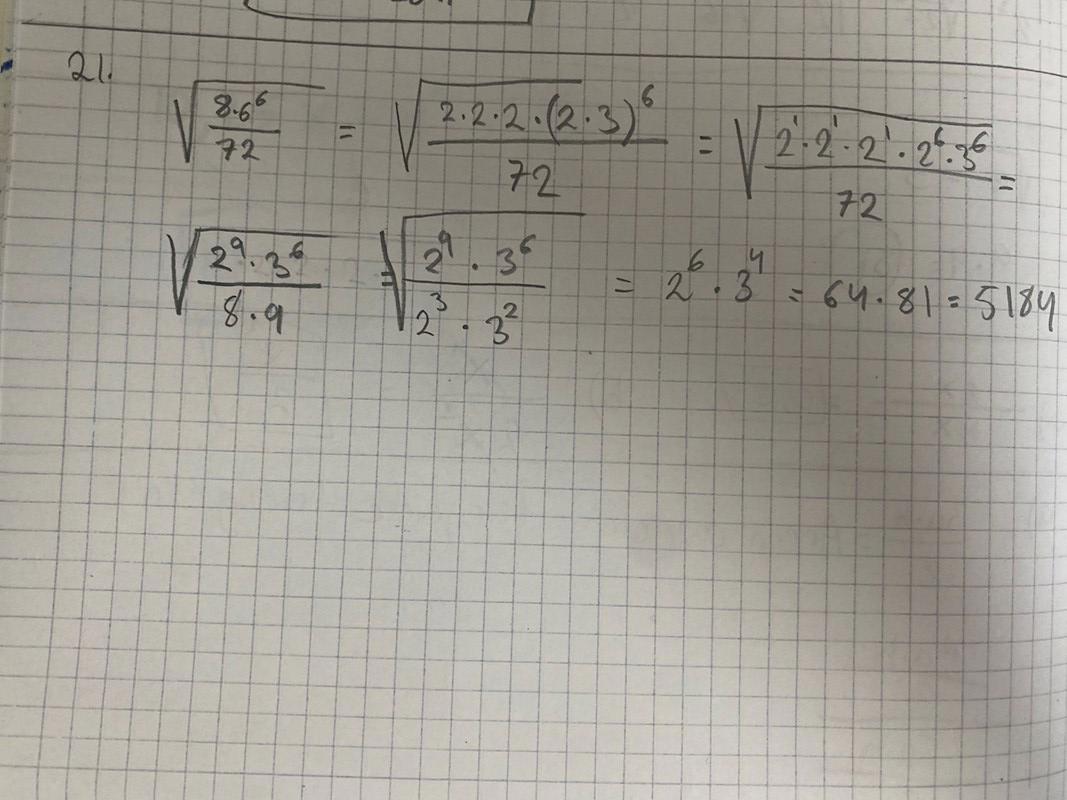 21.
√(8·6⁶/72) = √(2·2·2·(2·3)⁶/72) = √(2¹·2¹·2¹·2⁶·3⁶/72) =
√(2⁹·3⁶/8·9) = √(2⁹·3⁶/2³·3²) = 2⁶·3⁴ = 64·81 = 5184